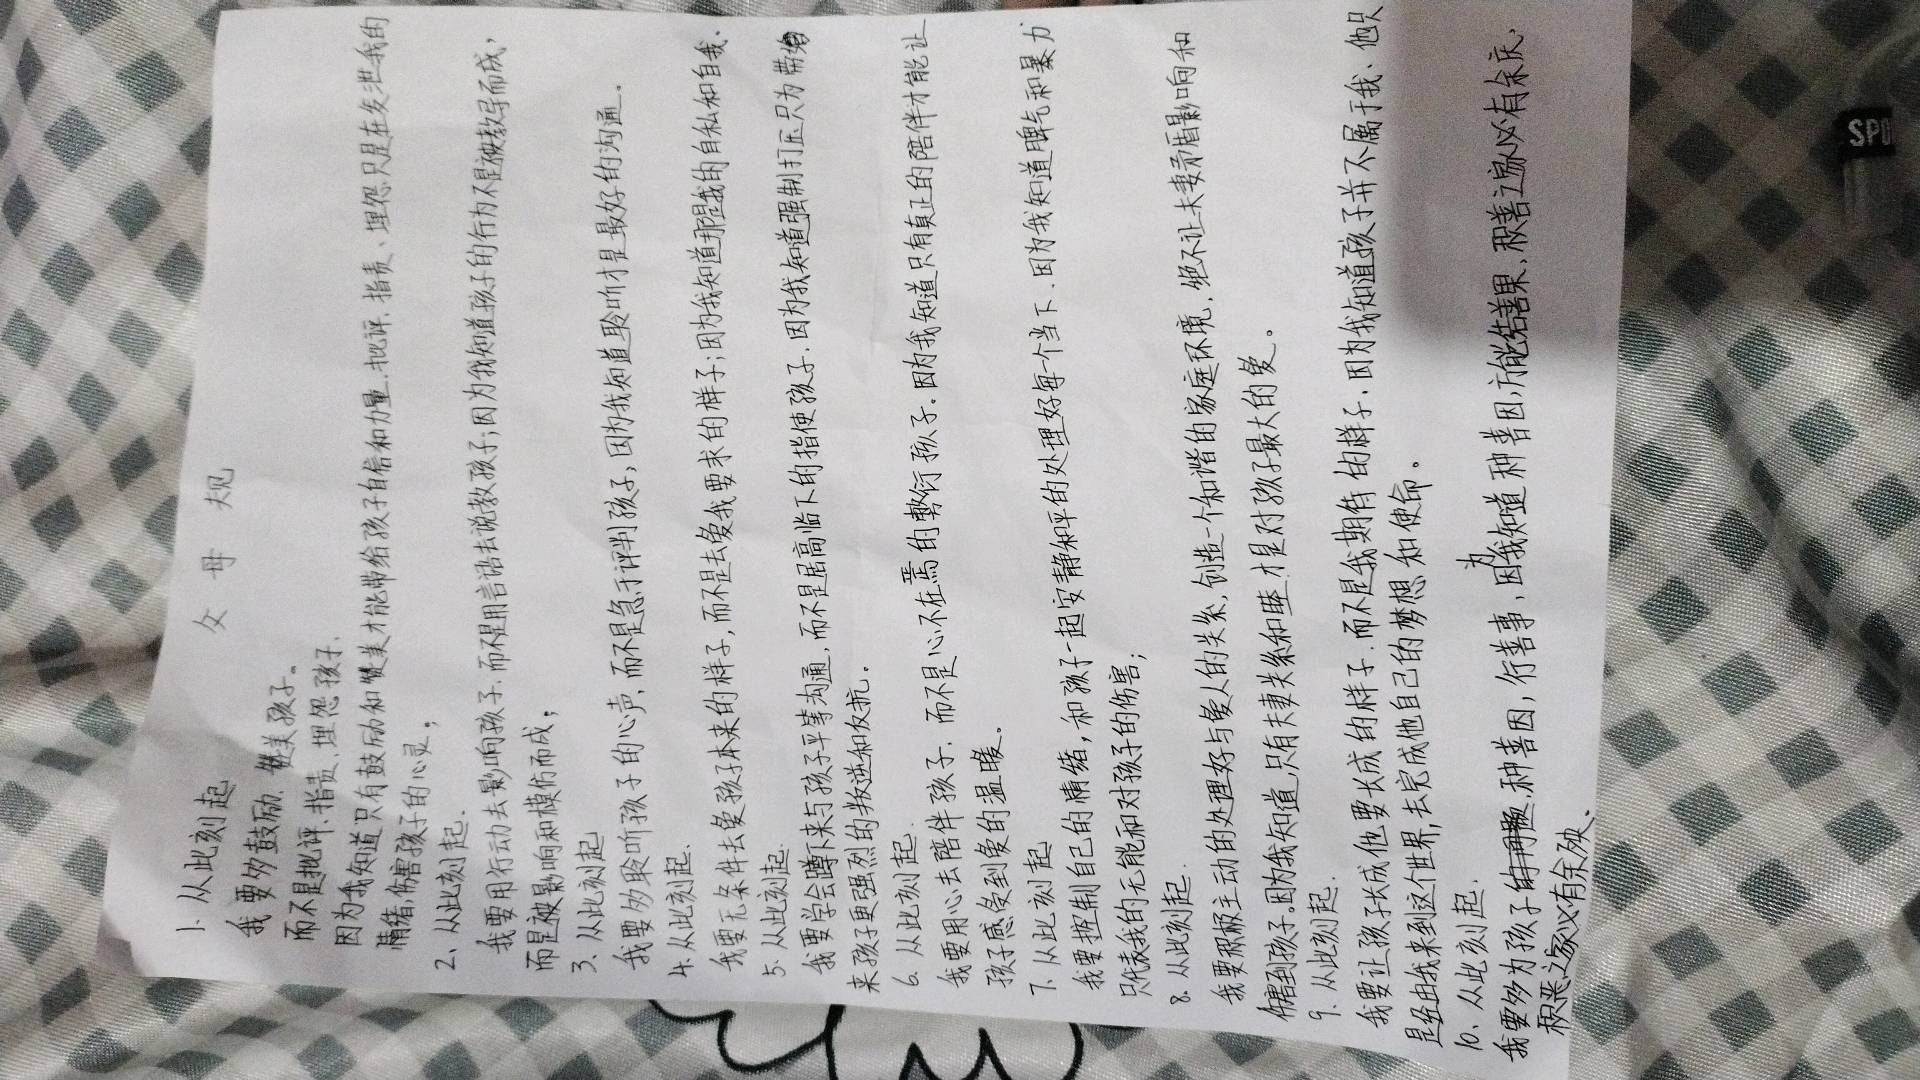 父 母 规
1、从此刻起
我要多鼓励、赞美孩子。
而不是批评、指责、埋怨孩子.
因为我知道只有鼓励和赞美才能带给孩子自信和力量.批评.指责、埋怨只是在发泄我的
情绪,伤害孩子的心灵；
2、从此刻起.
我要用行动去影响孩子.而不是用言语去说教孩子;因为我知道孩子的行为不是被教导而成,
而是被影响和模仿而成；
3、从此刻起
我要多聆听孩子的心声,而不是急于评判孩子,因为我知道聆听才是最好的沟通。
4.从此刻起.
我要无条件去爱孩子本来的样子,而不是去爱我要求的样子;因为我知道那是我的自私和自我.
5、从此刻起.
我要学会蹲下来与孩子平等沟通,而不是居高临下的指使孩子.因为我知道强制打压只为带
来孩子更强烈的叛逆和反抗.
6、从此刻起.
我要用心去陪伴孩子.而不是心不在焉的敷衍孩子.因为我知道只有真正的陪伴才能让
孩子感受到爱的温暖。
7、从此刻起
我要控制自己的情绪,和孩子一起安静和平的处理好每一个当下.因为我知道脾气和暴力
只代表我的无能和对孩子的伤害;
8、从此刻起.
我要积极主动的处理好与爱人的关系,创造一个和谐的家庭环境.绝不让夫妻矛盾影响和
伤害到孩子.因为我知道,只有夫妻关系和睦.才是对孩子最大的爱.
9、从此刻起.
我要让孩子长成他要长成的样子.而不是我期待的样子.因为我知道孩子并不属于我、他只
是经由我来到这个世界,去完成他自己的梦想和使命。
10、从此刻起.
我要多为孩子种善因,行善事,因为我知道种善因,方能结善果,积善之家必有余庆,
积恶之家必有余殃.
SPO